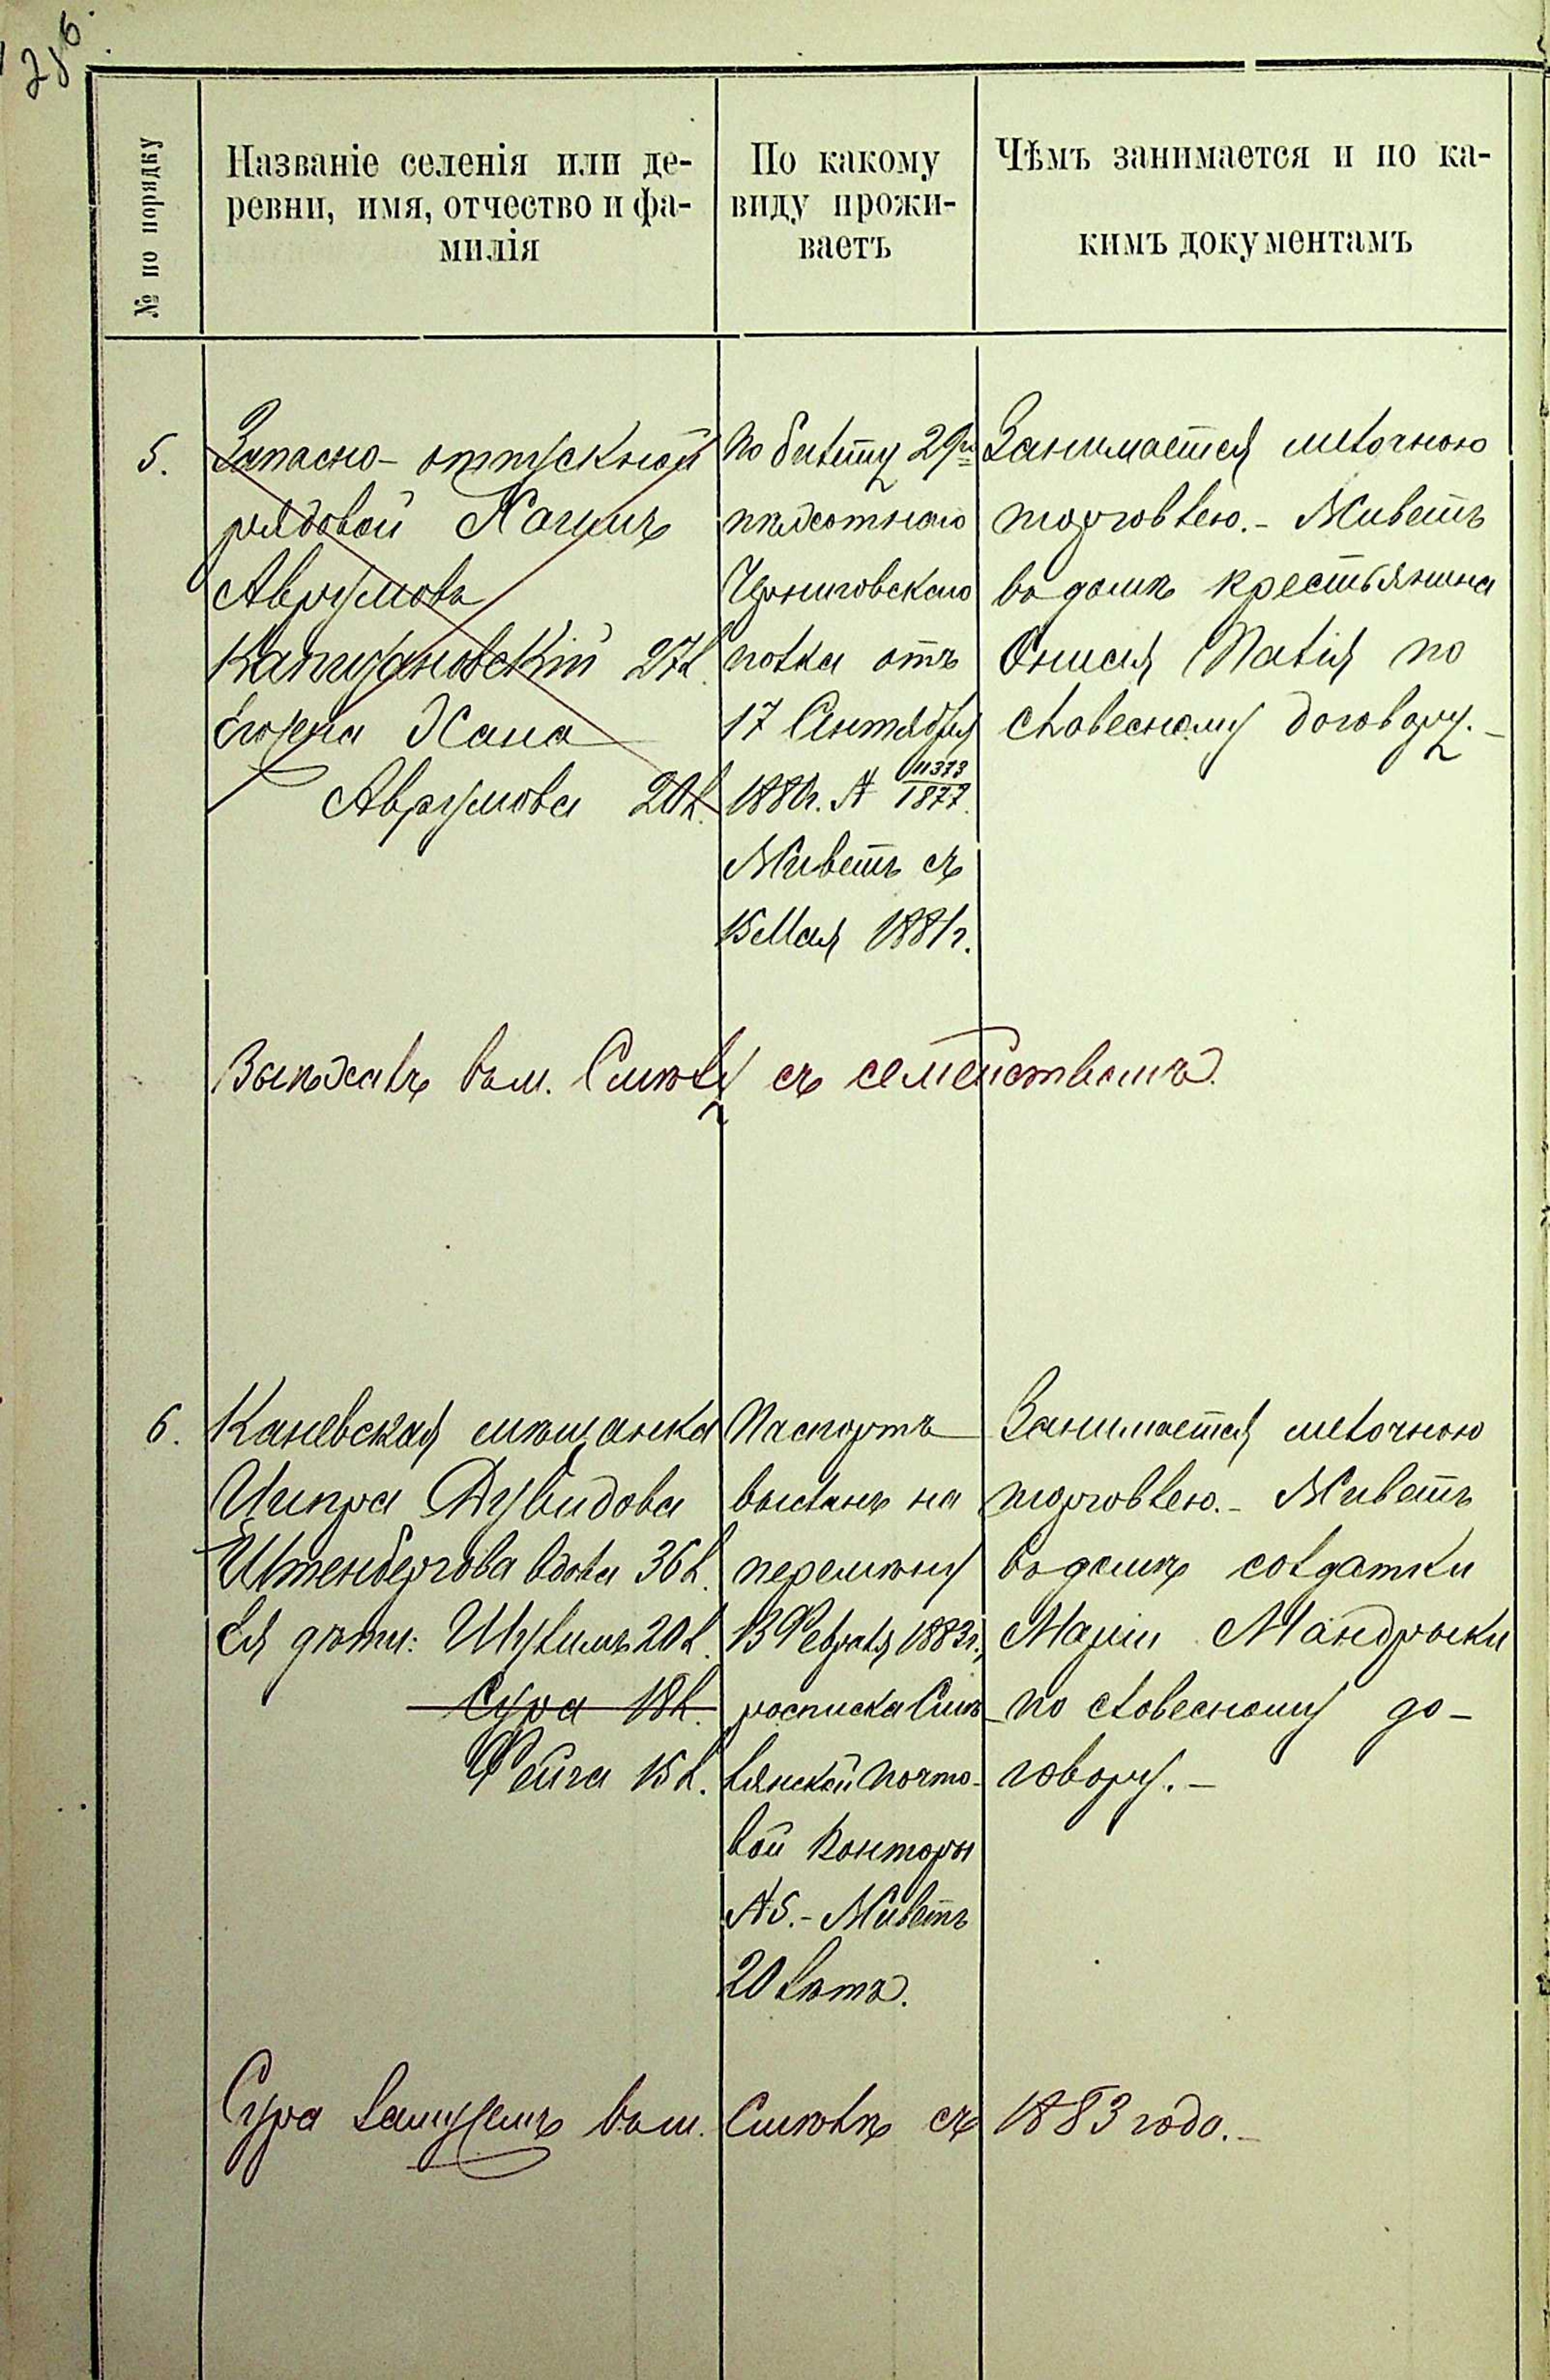 № по порядку
Названіе селенія или де-
ревни, имя, отчество и фа-
милія
По какому
виду прожи-
ваетъ
Чѣмъ занимается и по ка-
кимъ документамъ
5.
Запасно-отпускной
рядовой
Аврумовъ
27 л.
Его жена Хана
Аврумова 20 л.
По билету 29го
пѣхотнаго
Черниговскаго
полка отъ
17 Сентября
1880г. № 11373
1877.
Живетъ съ
15 Мая 1881г.
Занимается мелочною
торговлею.- Живетъ
въ домѣ крестьянина
Онисія Палія по
словесному договору.-
Выѣхалъ въ м. Смѣлу съ семействомъ.
6.
Каневская мѣщанка
Ципра Дувидова
Штенбергова вдова 36 л.
Ея дѣти: Шулимъ 20 л.
Сура 18 л.
Фейга 15 л.
Паспортъ
высланъ на
перемѣну
13 Февраля 1883г.,
росписка Смѣ-
лянской почто-
вой Конторы
№ 5.- Живетъ
20 лѣтъ.
Занимается мелочною
торговлею.- Живетъ
въ домѣ солдатки
Маріи Мандрыки
по словесному до-
говору.-
Сура замужемъ въ м. Смѣлѣ съ 1883 года.-